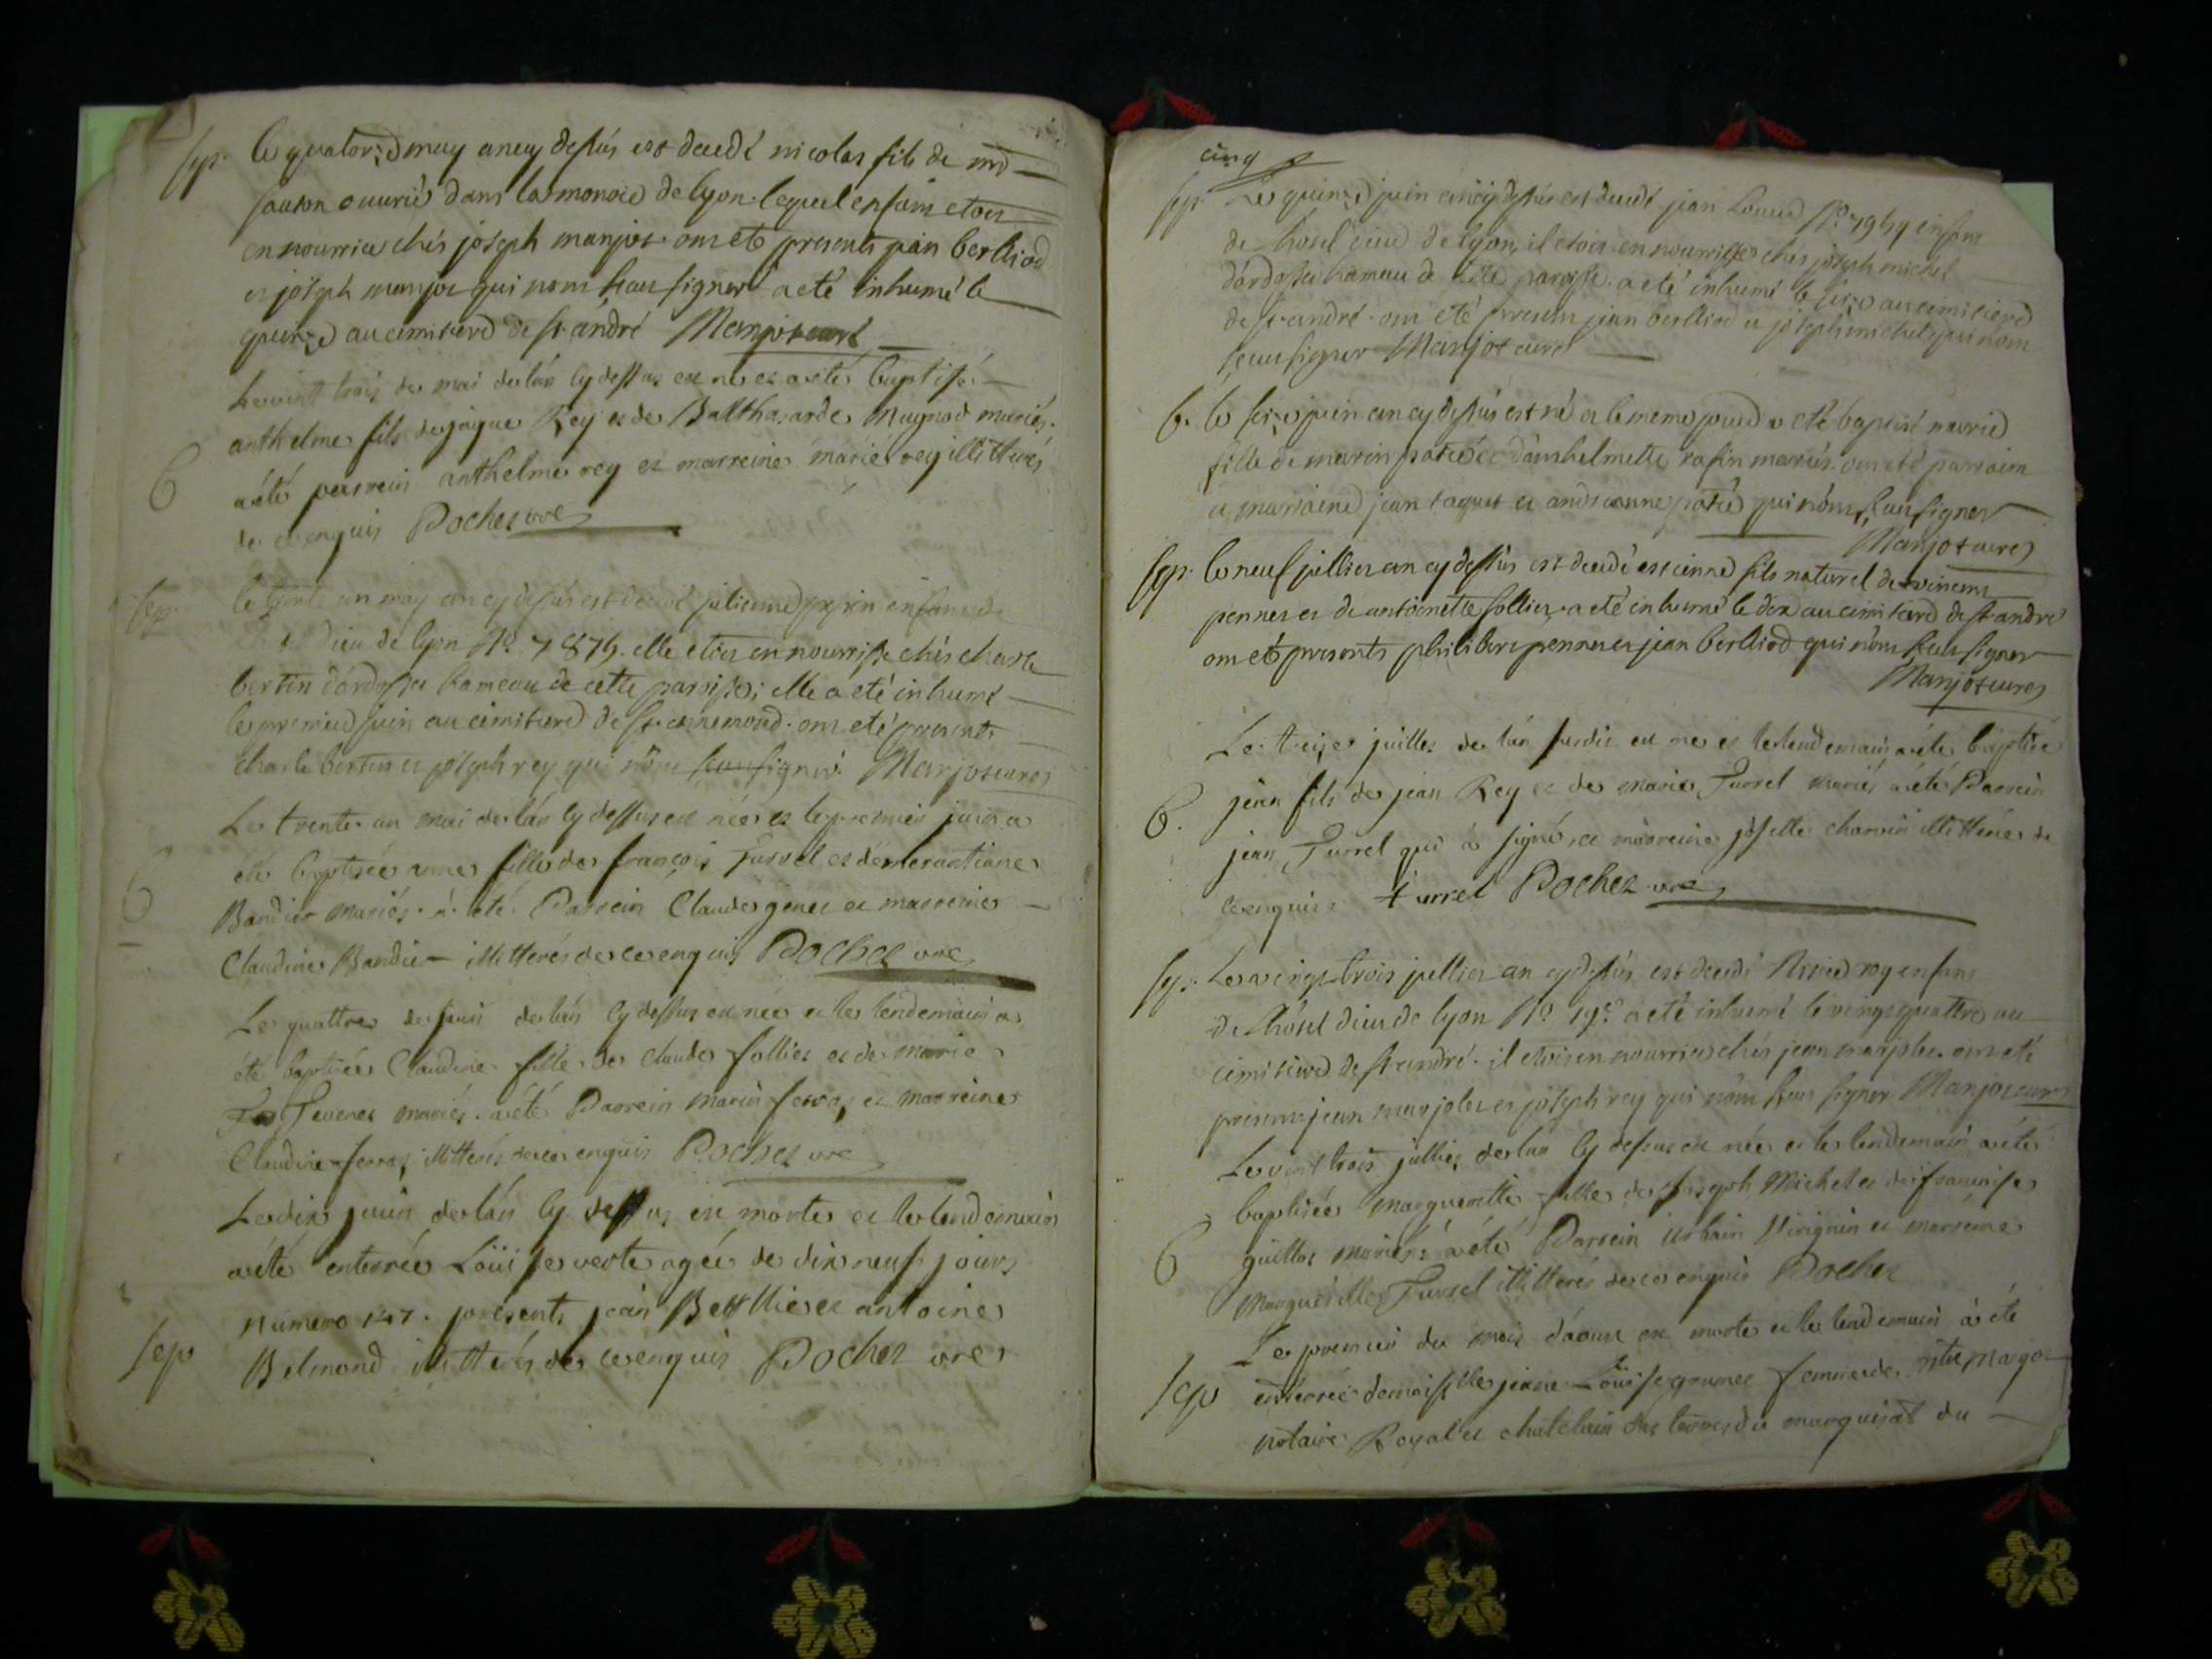 sep. le quatorze may an cy dessus est decedé nicolas fils de
ouvrié dans la monoie de lyon. lequel enfant etoit
en nourrice chés joseph manjot. ont eté presents jean berlliod
et joseph manjot qui nont seau signer a eté inhumé le
quinze au cimitiere de st. andré Manjot curé
Le vintt trois de mai de lán cy dessus est né et a été baptisé
anthelme fils de jaque Rey et de Balthazarde Mugnod mariés.
6 a été parrein anthelme rey et marreine marié rey illitterés
de ce enquis Pochet vre
sep. le trente un may an cy dessus est decedé julienne enfant de
dieu de lyon No. 7879. elle etoit en nourrisse chés charle
bertin dardosset hameau de cette paroisse; elle a eté inhumé
le premier juin au cimitiere de st. ennemond. ont eté presents
charle bertin et joseph rey qui nont seau signér. Manjot curé
Le trente un mai de lán cy dessus est née et le premier juin a
6 été baptisée anne fille de françois Furrel et démerantiane
Bandier mariés. a été Parrein Claude genet et marreine
Claudine Bandier illitterés de ce enquis Pochet vre
Le quattre de juin de lán cy dessus est née et le lendemain a
été baptisée Claudine fille de Claude follier et de marie
Tevenet mariés. a été Parrein marin ferraz et marreine
Claudine ferraz illitterés de ce enquis Pochet vre
Le dix juin de lán cy dessus est morte et le lendemain
a été enterrée Loüise verte agée de dix neuf jours
numero 147. présents jean Berlliet et antoine
sep Belmond illitterés de ce enquis Pochet vre
cinq
sep. Le quinze juin an cy dessus est decedé jean Louis No. 7949 enfant
de lhotel dieu de lyon, il etoit en nourrisse chés joseph michel
dardosset hameau de cette paroisse. a eté inhumé le seize au cimitiere
de st. andré. ont eté presents jean berlliod et joseph michel qui nont
seau signer Manjot curé
b. le seize juin an cy dessus est né et le meme jour a eté baptisé marie
fille de marin patie et danthelmette rafin mariés. ont eté parrain
et marraine jean taquet et andreanne patie qui nont seau signer
Manjot curé
sep. le neuf jullier an cy dessus est decedé estienne fils naturel de vincent
pennet et de antoinette follier. a eté inhumé le dix au cimitiere de st andré
ont eté presents philibert pennet et jean berlliod qui nont seau signer
Manjot curé
Le treize juillet de lán susdit est né et le lendemain a été baptisé
6. jean fils de jean Rey et de marie Furrel mariés a été Parrein
jean Furrel qui a signé, et marreine josette charvin illitterée de
ce enquis. furrel Pochet vre
sep. Le vingt trois jullier an cy dessus est decedé rey enfant
de lhotel dieu de lyon No. 19e. a eté inhumé le vingt quattre au
cimitiere de st andré. il etoit en nourrice chés jean marjolet. ont eté
presents jean marjolet et joseph rey qui nont seau signer Manjot curé
Le vint trois jullier de lan cy dessus est née et le lendemain a été
baptisée marguerittte fille de joseph Michel et de fransoise
6 guillot mariés a été Parrein urbain Virignin et marreine
Margueritte Furrel illitterés de ce enquis Pochet
Le premier du mois d'aoust est morte et le lendemain à été
sep enterrée demoiselle jeane Loüise femme de mtre Marjot
notaire Royal et chatelain des terres du marquisat du